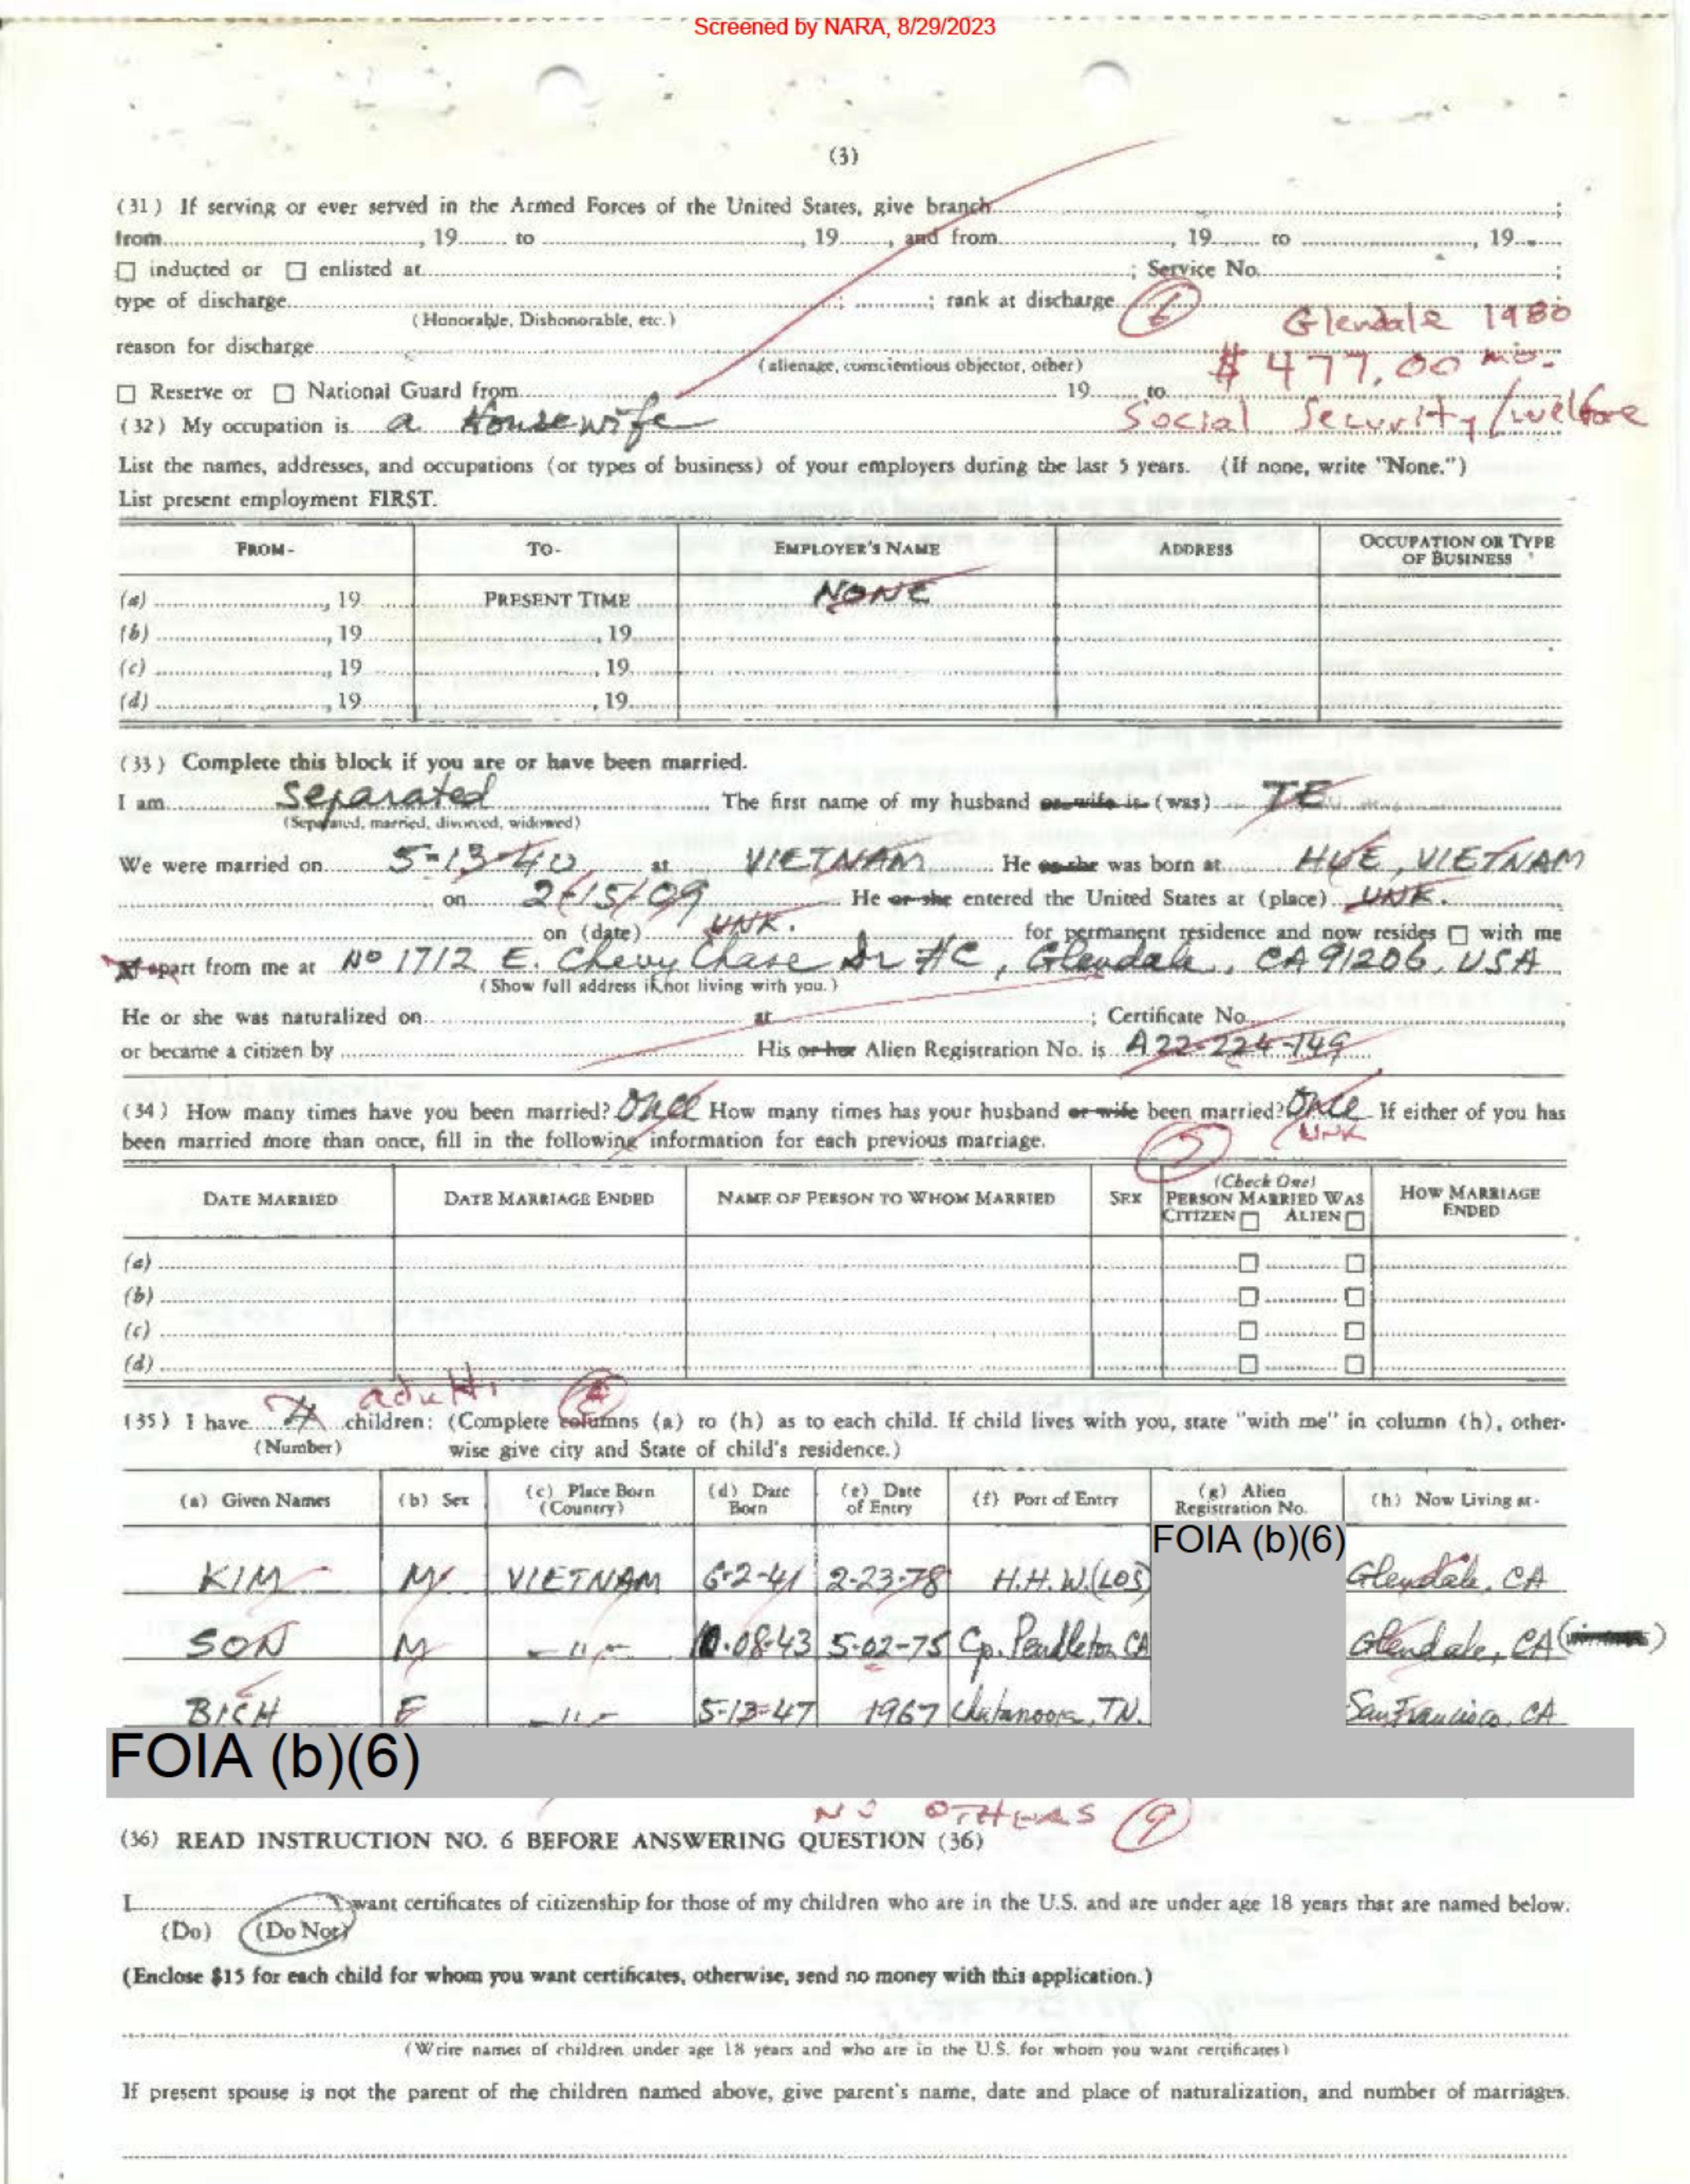 Screened by NARA, 8/29/2023
(3)
(31) If serving or ever served in the Armed Forces of the United States, give branch ;
from , 19 to , 19 , and from , 19 to , 19
☐ inducted or ☐ enlisted at ; Service No. ;
type of discharge ; ; rank at discharge (6) Glendale 1980
(Honorable, Dishonorable, etc.)
reason for discharge $477.00 mo.
(alienage, conscientious objector, other)
☐ Reserve or ☐ National Guard from 19 to
Social Security/welfare
(32) My occupation is a Housewife
List the names, addresses, and occupations (or types of business) of your employers during the last 5 years. (If none, write "None.")
List present employment FIRST.
FROM- TO- EMPLOYER'S NAME ADDRESS OCCUPATION OR TYPE OF BUSINESS
(a) , 19 PRESENT TIME NONE
(b) , 19 , 19
(c) , 19 , 19
(d) , 19 , 19
(33) Complete this block if you are or have been married.
I am Separated The first name of my husband or wife is (was) TE
(Separated, married, divorced, widowed)
We were married on 5-13-40 at VIETNAM He or she was born at HUE, VIETNAM
on 2/15/09 He or she entered the United States at (place) UNK.
on (date) UNK. for permanent residence and now resides ☐ with me
☒ apart from me at No 1712 E. Chevy Chase Dr #C, Glendale, CA 91206, USA
(Show full address if not living with you.)
He or she was naturalized on at ; Certificate No.
or became a citizen by His or her Alien Registration No. is A22-224-149
(34) How many times have you been married? Once How many times has your husband or wife been married? Once If either of you has
UNK
been married more than once, fill in the following information for each previous marriage.
DATE MARRIED DATE MARRIAGE ENDED NAME OF PERSON TO WHOM MARRIED SEX (Check One) PERSON MARRIED WAS CITIZEN ☐ ALIEN ☐ HOW MARRIAGE ENDED
(a) ☐ ☐
(b) ☐ ☐
(c) ☐ ☐
(d) ☐ ☐
(35) I have 4 children: (Complete columns (a) to (h) as to each child. If child lives with you, state "with me" in column (h), other-
(Number) wise give city and State of child's residence.)
(a) Given Names (b) Sex (c) Place Born (Country) (d) Date Born (e) Date of Entry (f) Port of Entry (g) Alien Registration No. (h) Now Living at-
FOIA (b)(6)
KIM M VIETNAM 6-2-41 2-23-78 H.H.W.(LOS) Glendale, CA
SON M -"- 10-08-43 5-02-75 Cp. Pendleton CA Glendale, CA
BICH F -"- 5-12-47 1967 Chatanooga, TN. San Francisco, CA
FOIA (b)(6)
NO OTHERS (9)
(36) READ INSTRUCTION NO. 6 BEFORE ANSWERING QUESTION (36)
I want certificates of citizenship for those of my children who are in the U.S. and are under age 18 years that are named below.
(Do) (Do Not)
(Enclose $15 for each child for whom you want certificates, otherwise, send no money with this application.)
(Write names of children under age 18 years and who are in the U.S. for whom you want certificates)
If present spouse is not the parent of the children named above, give parent's name, date and place of naturalization, and number of marriages.